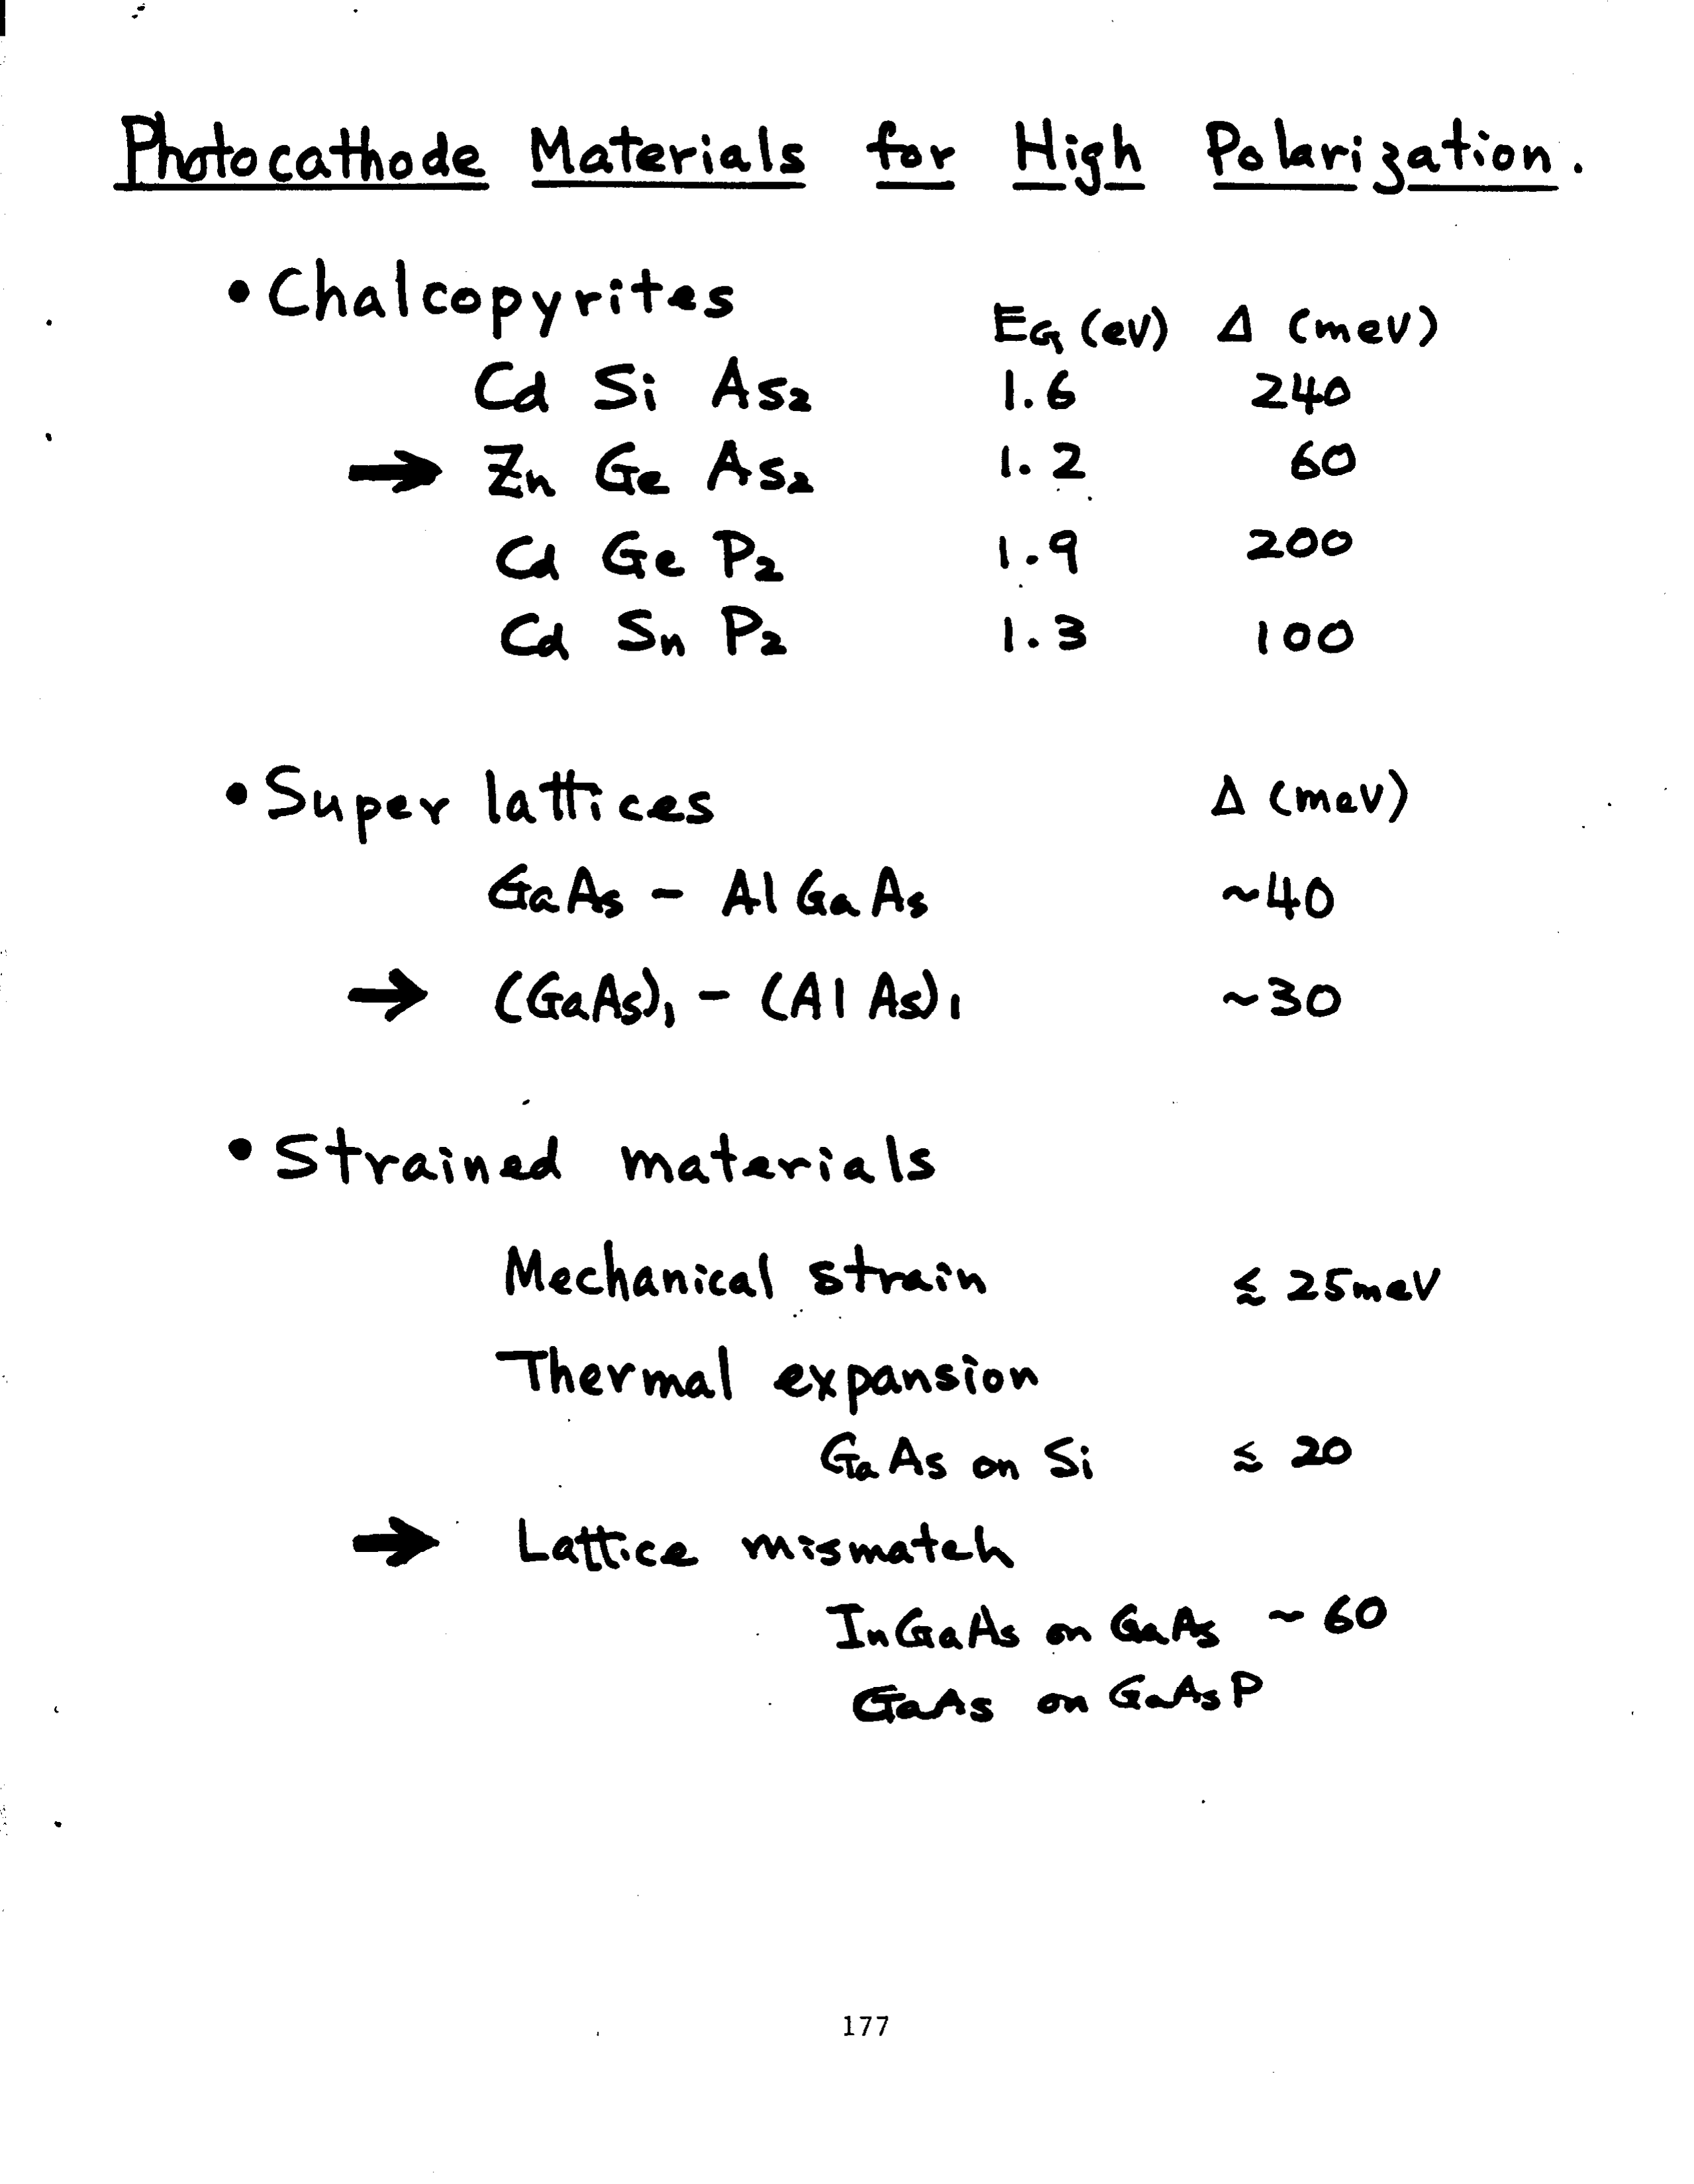 Photocathode Materials for High Polarization.
• Chalcopyrites
E_G (eV) Δ (meV)
Cd Si As₂ 1.6 240
→ Zn Ge As₂ 1.2 60
Cd Ge P₂ 1.9 200
Cd Sn P₂ 1.3 100
• Super lattices Δ (meV)
GaAs - AlGaAs ~40
→ (GaAs)₁ - (AlAs)₁ ~30
• Strained materials
Mechanical strain ≲ 25meV
Thermal expansion
GaAs on Si ≲ 20
→ Lattice mismatch
InGaAs on GaAs ~ 60
GaAs on GaAsP
177